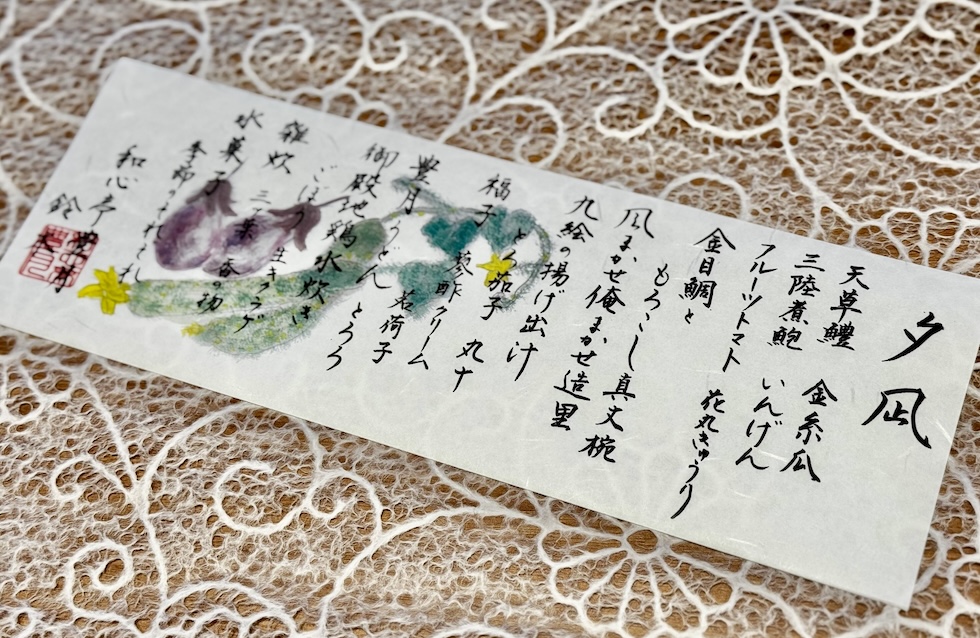 夕凪
天草鱧 金糸瓜
三陸煮鮑 いんげん
フルーツトマト 花丸きゅうり
金目鯛と
もろこし真丈椀
凪まかせ俺まかせ造里
九絵の揚げ出汁
とろ茄子 丸十
福子 蓼酢クリーム
豊月うどん とろろ
御殿地鶏水炊き 茗荷子
ごぼう 生きくらげ
雑炊 三つ葉 香の物
水菓子
季節のまれもの
和心亭 豊月
鈴